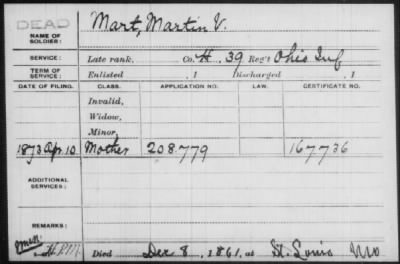 DEAD
NAME OF SOLDIER: Mart, Martin V.
SERVICE: Late rank, Co. H. 39 Reg't Ohio Inf
TERM OF SERVICE: Enlisted , 1 Discharged , 1
DATE OF FILING. CLASS. APPLICATION NO. LAW. CERTIFICATE NO.
Invalid,
Widow,
Minor,
1873 Apr. 10 Mother 208.779 167736
ADDITIONAL SERVICES:
REMARKS:
Died Dec 8, 1861, at St. Louis Mo